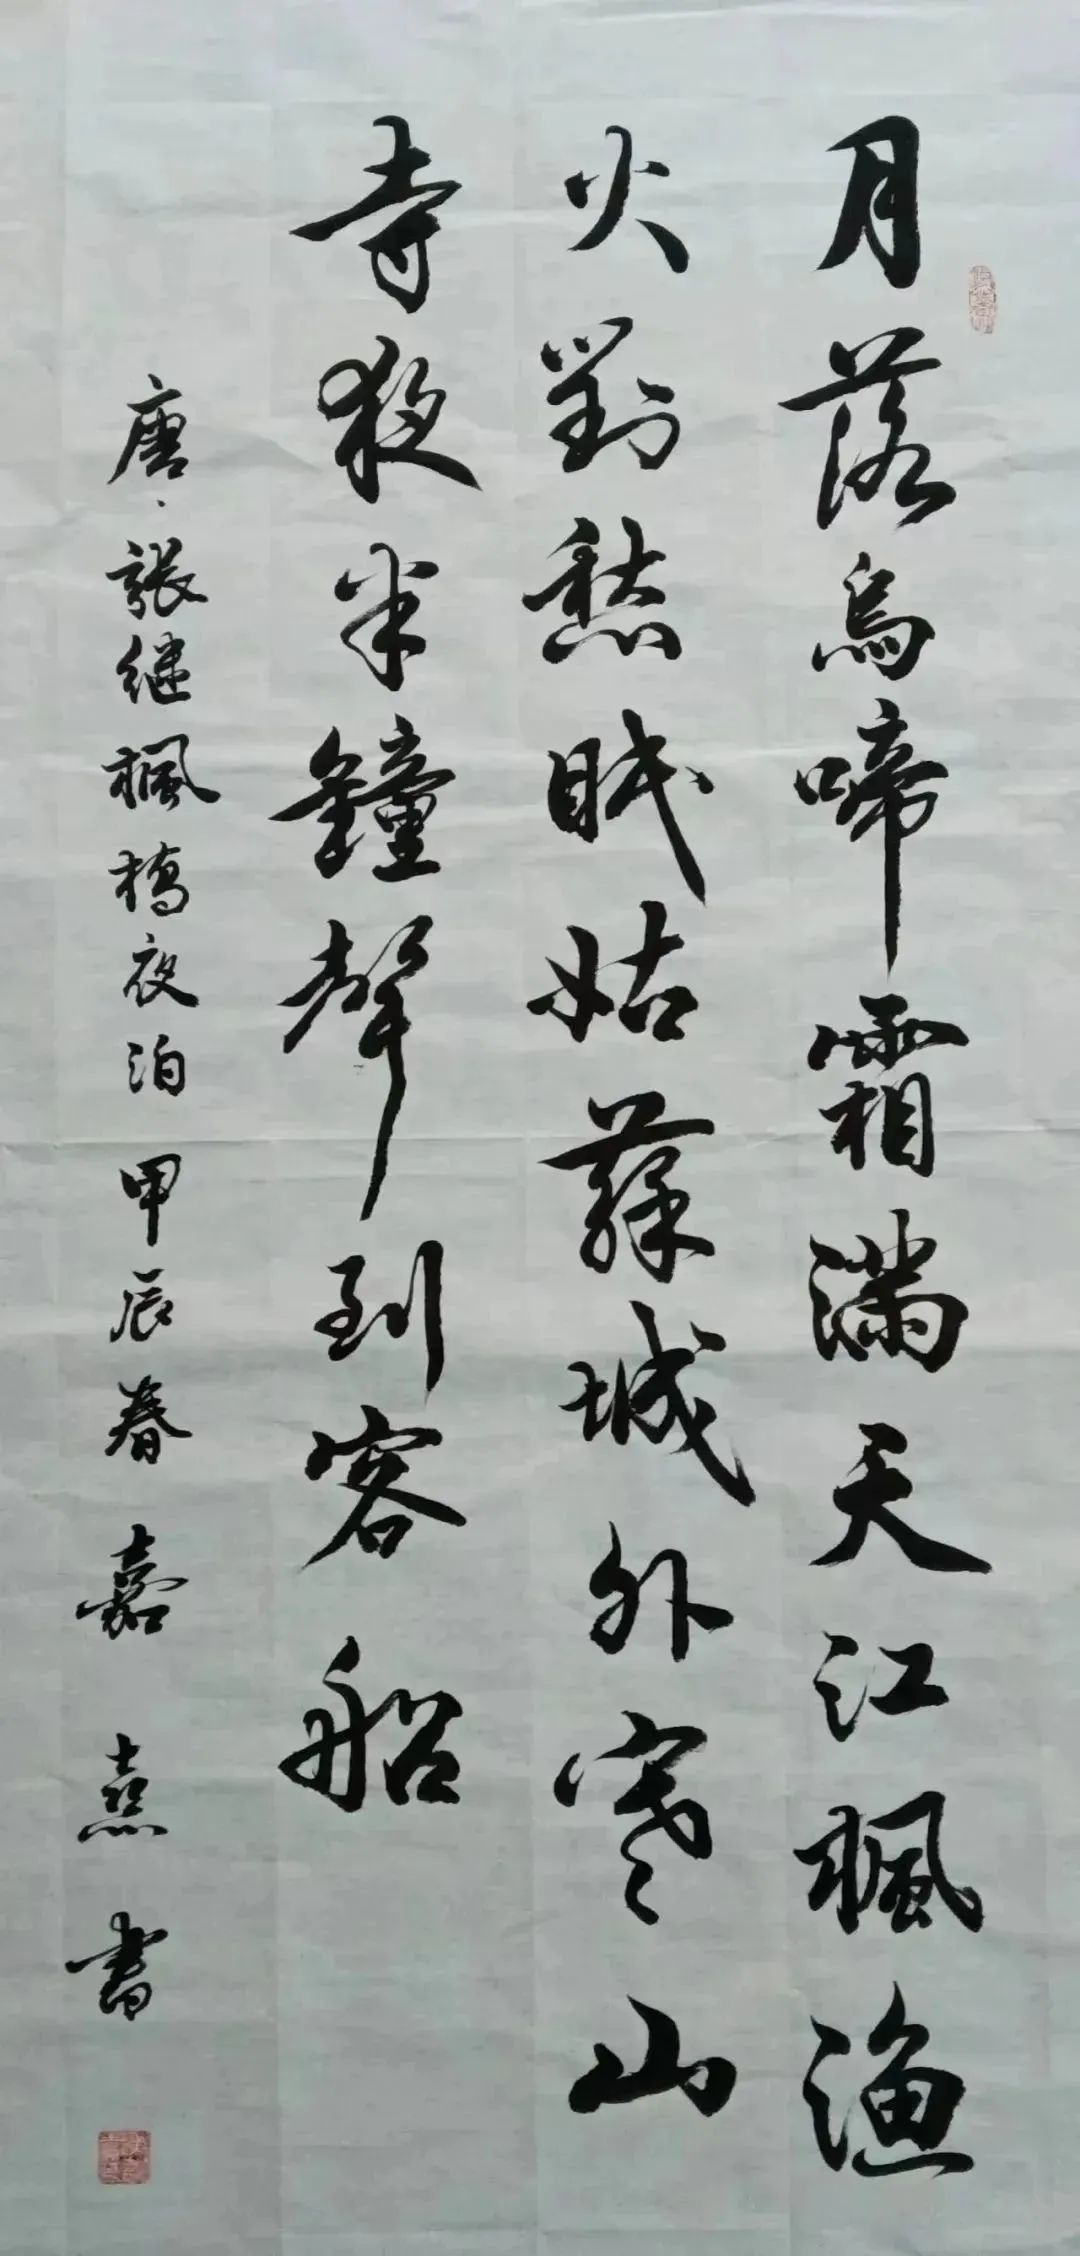 月落烏啼霜满天江楓渔
火對愁眠姑蘇城外寒山
寺夜半鐘聲到客船
唐、張继楓橋夜泊甲辰春嘉熹書